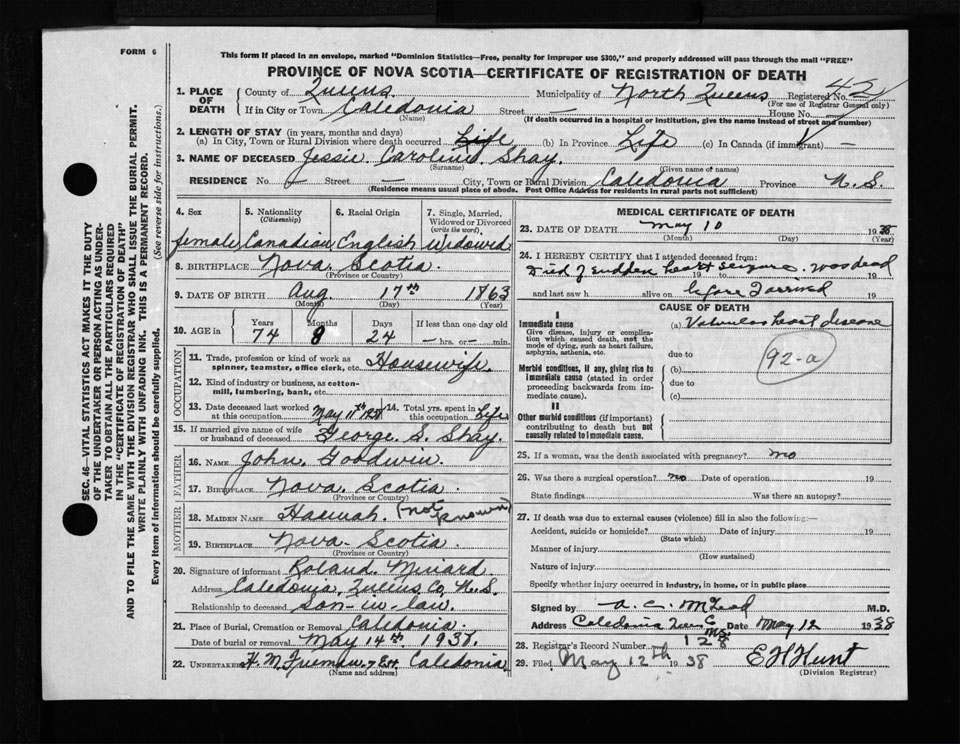 FORM 6
This form if placed in an envelope, marked "Dominion Statistics—Free, penalty for improper use $300," and properly addressed will pass through the mail "FREE"
PROVINCE OF NOVA SCOTIA—CERTIFICATE OF REGISTRATION OF DEATH
1. PLACE OF DEATH
County of Queens Municipality of North Queens Registered No. 42
(For use of Registrar General only)
If in City or Town Caledonia Street — House No. —
(Name) (If death occurred in a hospital or institution, give the name instead of street and number)
2. LENGTH OF STAY (in years, months and days)
(a) In City, Town or Rural Division where death occurred Life (b) In Province Life (c) In Canada (if immigrant) —
3. NAME OF DECEASED Jessie Caroline Shay.
(Surname) (Given name or names)
RESIDENCE No. — Street — City, Town or Rural Division Caledonia Province N.S.
(Residence means usual place of abode. Post Office Address for residents in rural parts not sufficient)
4. Sex
female
5. Nationality (Citizenship)
Canadian
6. Racial Origin
English
7. Single, Married, Widowed or Divorced (write the word)
Widowed
8. BIRTHPLACE Nova Scotia.
(Province or Country)
9. DATE OF BIRTH Aug. 17th 1863
(Month) (Day) (Year)
10. AGE in
Years Months Days If less than one day old
74 8 24 — hrs. or — min.
OCCUPATION
11. Trade, profession or kind of work as spinner, teamster, office clerk, etc. Housewife.
12. Kind of industry or business, as cotton-mill, lumbering, bank, etc.
13. Date deceased last worked at this occupation May
14. Total yrs. spent in this occupation Life
15. If married give name of wife or husband of deceased George. S. Shay.
FATHER
16. NAME John Goodwin.
17. BIRTHPLACE Nova. Scotia.
(Province or Country)
MOTHER
18. MAIDEN NAME Hannah. (not known)
19. BIRTHPLACE Nova-Scotia.
(Province or Country)
20. Signature of informant Roland. Minard.
Address Caledonia, Queens Co, N.S.
Relationship to deceased son-in-law.
21. Place of Burial, Cremation or Removal Caledonia.
Date of burial or removal May 14th. 1938.
22. UNDERTAKER H. M. Freeman Caledonia
(Name and address)
MEDICAL CERTIFICATE OF DEATH
23. DATE OF DEATH May 10 1938
(Month) (Day) (Year)
24. I HEREBY CERTIFY that I attended deceased from:
Died of sudden heart seizure. was dead
19 to 19
and last saw h alive on before I arrived 19
CAUSE OF DEATH
I
Immediate cause
Give disease, injury, or complication which caused death, not the mode of dying, such as heart failure, asphyxia, asthenia, etc.
(a) heart disease
due to
Morbid conditions, if any, giving rise to immediate cause (stated in order proceeding backwards from immediate cause).
(b)
due to
(c)
92-a
II
Other morbid conditions (if important) contributing to death but not causally related to immediate cause.
25. If a woman, was the death associated with pregnancy? no
26. Was there a surgical operation? no Date of operation 19
State findings Was there an autopsy?
27. If death was due to external causes (violence) fill in also the following:—
Accident, suicide or homicide? Date of injury 19
(State which)
Manner of injury
(How sustained)
Nature of injury
Specify whether injury occurred in industry, in home, or in public place
Signed by A. C. McLeod M.D.
Address Caledonia Date May 12 1938
28. Registrar's Record Number 128
29. Filed May 12th 1938 E H Hunt
(Division Registrar)
SEC. 46—VITAL STATISTICS ACT MAKES IT THE DUTY
OF THE UNDERTAKER OR PERSON ACTING AS UNDER-
TAKER TO OBTAIN ALL THE PARTICULARS REQUIRED
IN THE "CERTIFICATE OF REGISTRATION OF DEATH"
AND TO FILE THE SAME WITH THE DIVISION REGISTRAR WHO SHALL ISSUE THE BURIAL PERMIT.
WRITE PLAINLY WITH UNFADING INK. THIS IS A PERMANENT RECORD.
Every item of information should be carefully supplied. (See reverse side for instructions.)